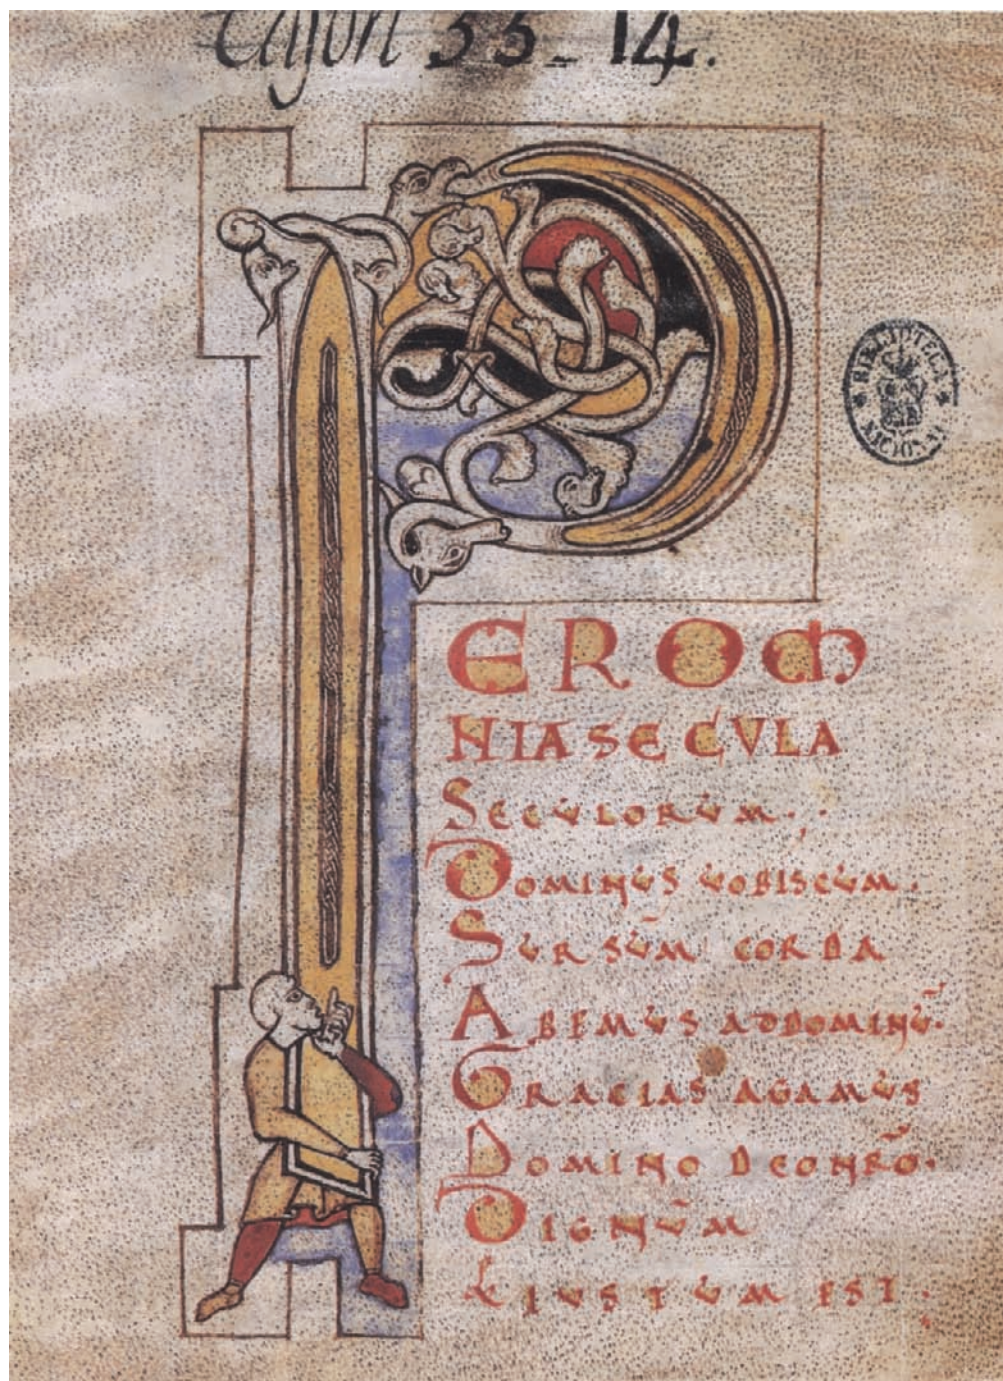 Cajon 33-14.
BIBLIOTECA NACIONAL
P
EROM
NIA SECULA
SECULORUM.
DOMINUS UOBISCUM.
SURSŪM CORDA
ABEMUS AD DOMINŪ.
GRACIAS AGAMUS
DOMINO DEO NR̄O.
DIGNŪM
& IUSTUM EST.